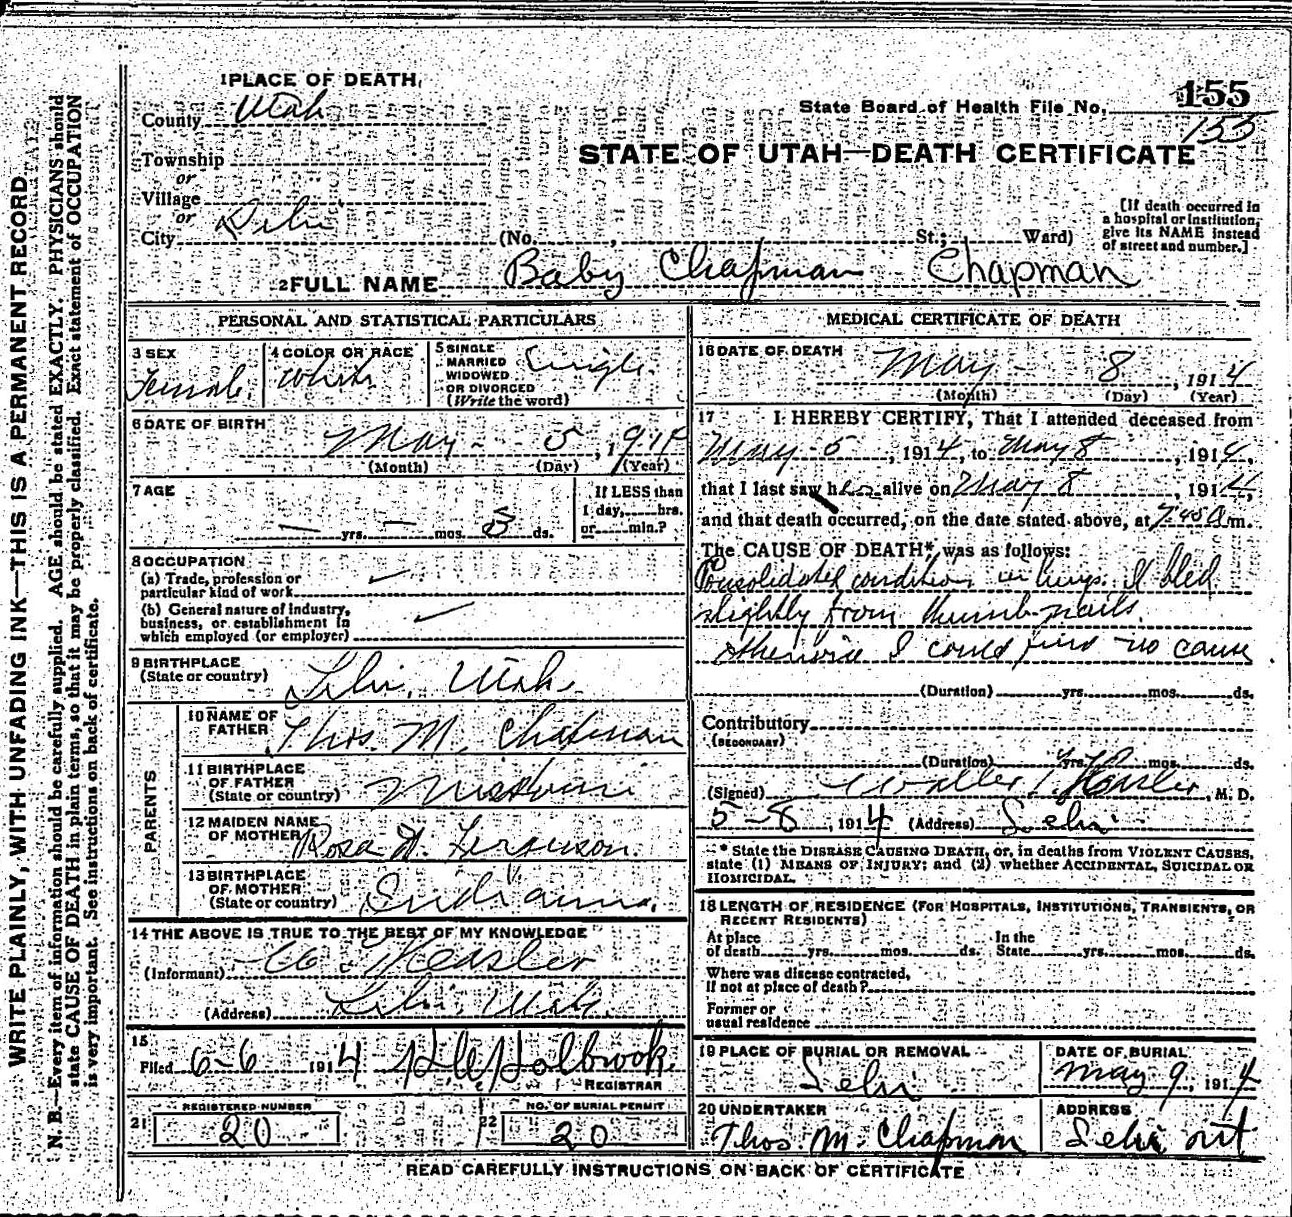 1 PLACE OF DEATH
County Utah
State Board of Health File No. 155
155
STATE OF UTAH—DEATH CERTIFICATE
Township
or
Village
or
City Lehi (No. , St.; Ward)
[If death occurred in
a hospital or institution,
give its NAME instead
of street and number.]
2 FULL NAME Baby Chapman Chapman
PERSONAL AND STATISTICAL PARTICULARS
3 SEX
Female
4 COLOR OR RACE
White
5 SINGLE
MARRIED
WIDOWED
OR DIVORCED
(Write the word)
Single
6 DATE OF BIRTH
May 5, 1914
(Month) (Day) (Year)
7 AGE
— yrs. — mos. 3 ds.
If LESS than
1 day, hrs.
or min.?
8 OCCUPATION
(a) Trade, profession or
particular kind of work
(b) General nature of industry,
business, or establishment in
which employed (or employer)
9 BIRTHPLACE
(State or country) Lehi, Utah
PARENTS
10 NAME OF
FATHER Thos. M. Chapman
11 BIRTHPLACE
OF FATHER
(State or country) Missouri
12 MAIDEN NAME
OF MOTHER Rosa Ferguson
13 BIRTHPLACE
OF MOTHER
(State or country) Indiana
14 THE ABOVE IS TRUE TO THE BEST OF MY KNOWLEDGE
(Informant) W. Hasler
(Address) Lehi, Utah
15
Filed 6-6 1914 Holbrook
REGISTRAR
21 REGISTERED NUMBER
20
22 NO. OF BURIAL PERMIT
20
MEDICAL CERTIFICATE OF DEATH
16 DATE OF DEATH
May 8, 1914
(Month) (Day) (Year)
17 I HEREBY CERTIFY, That I attended deceased from
May 5, 1914, to May 8, 1914,
that I last saw her alive on May 8, 1914,
and that death occurred, on the date stated above, at 7:45 A m.
The CAUSE OF DEATH* was as follows:
Consolidated condition in lungs. It bled
slightly from thumb nails.
otherwise I could find no cause
(Duration) yrs. mos. ds.
Contributory
(SECONDARY)
(Duration) yrs. mos. ds.
(Signed) Walter T. Hasler, M. D.
5-8, 1914 (Address) Lehi
* State the DISEASE CAUSING DEATH, or, in deaths from VIOLENT CAUSES,
state (1) MEANS OF INJURY; and (2) whether ACCIDENTAL, SUICIDAL OR
HOMICIDAL.
18 LENGTH OF RESIDENCE (FOR HOSPITALS, INSTITUTIONS, TRANSIENTS, OR
RECENT RESIDENTS)
At place
of death yrs. mos. ds.
In the
State yrs. mos. ds.
Where was disease contracted,
If not at place of death?
Former or
usual residence
19 PLACE OF BURIAL OR REMOVAL
Lehi
DATE OF BURIAL
May 9, 1914
20 UNDERTAKER
Thos M. Chapman
ADDRESS
Lehi
READ CAREFULLY INSTRUCTIONS ON BACK OF CERTIFICATE
WRITE PLAINLY, WITH UNFADING INK—THIS IS A PERMANENT RECORD
N. B.—Every item of information should be carefully supplied. AGE should be stated EXACTLY. PHYSICIANS should
state CAUSE OF DEATH in plain terms, so that it may be properly classified. Exact statement of OCCUPATION
is very important. See instructions on back of certificate.